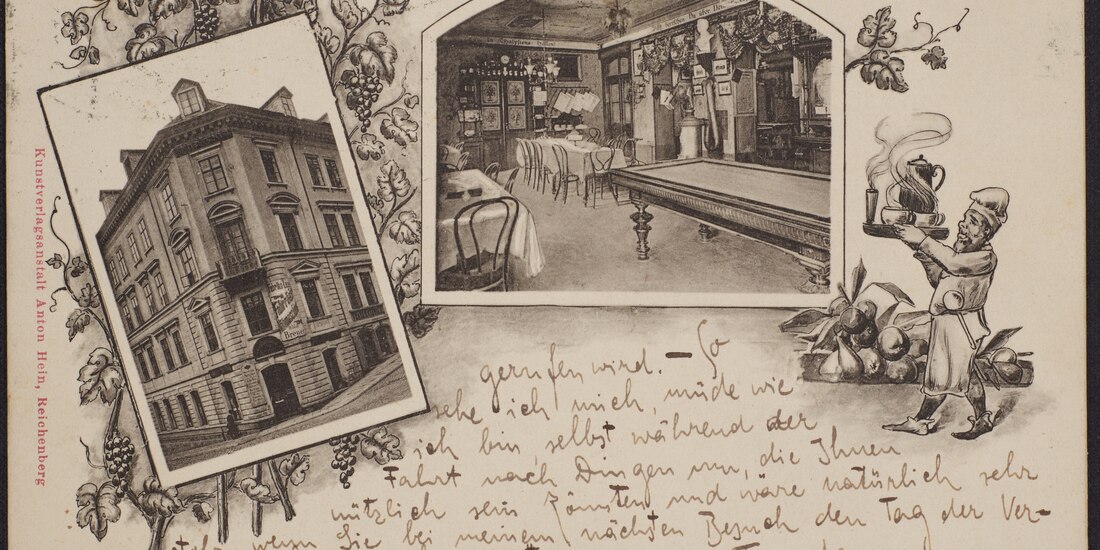 Kunstverlagsanstalt Anton Hein, Reichenberg
gerufen wird. – So
sehe ich mich, müde wie
ich bin, selbst während der
Fahrt nach Dingen um, die Ihnen
nützlich sein könnten und wäre natürlich sehr
stolz, wenn Sie bei meinem nächsten Besuch den Tag der Ver-